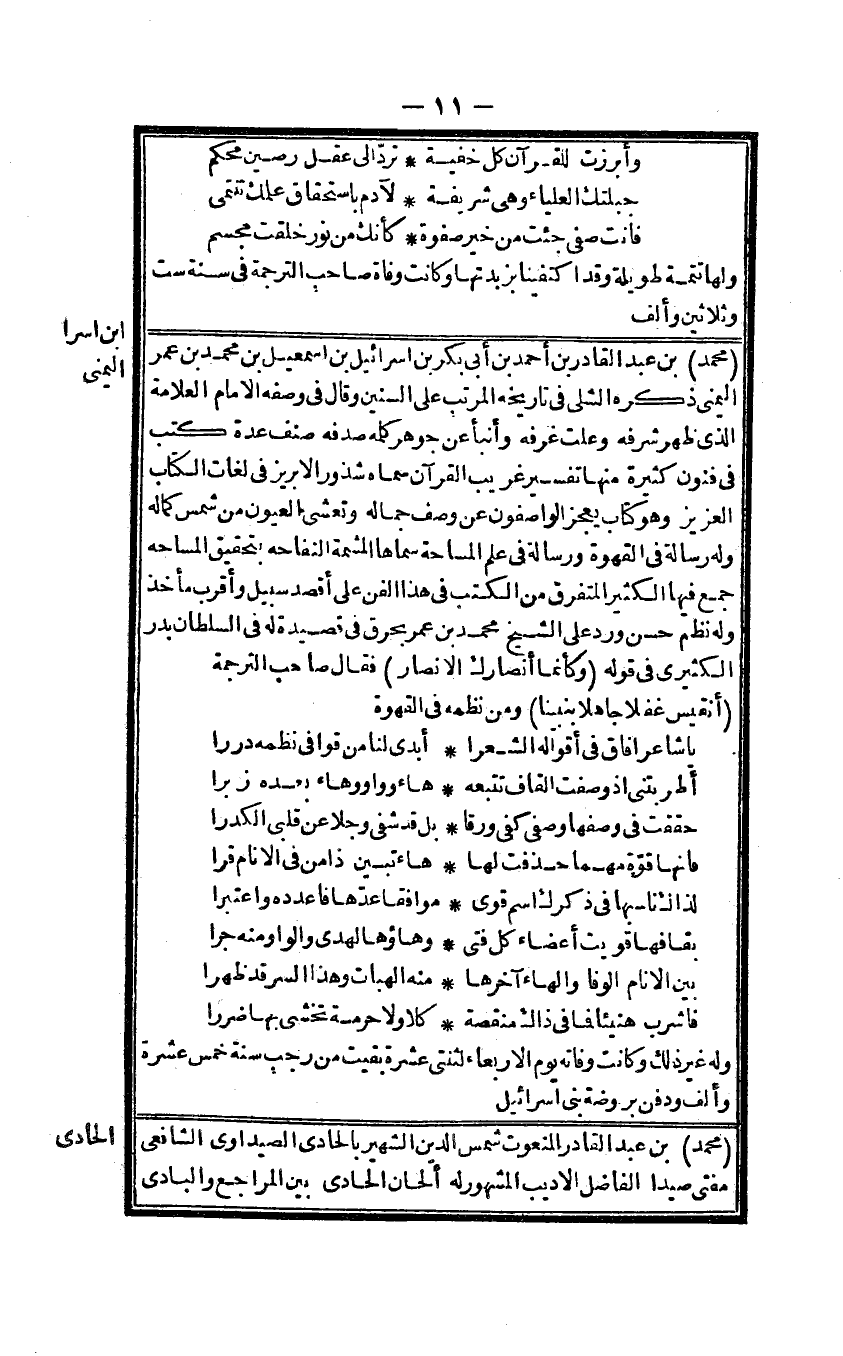 — ١١ —
وأبرزت للقرآن كل خفية * تردّ الى عقل رصين محكم
جبلتك العلياء وهى شريفة * لآدم باستحقاق علمك تنتمى
فانت صفى جئت من خير صفوة * كأنك من نور خلقت مجسم
ولها تتمة طويلة وقد اكتفينا بزبدتها وكانت وفاة صاحب الترجمة فى سنة ست
وثلاثين وألف
ابن اسرا
اليمنى
(محمد) بن عبد القادر بن أحمد بن أبى بكر بن اسرائيل بن اسمعيل بن محمد بن عمر
اليمنى ذكره الشلى فى تاريخه المرتب على السنين وقال فى وصفه الامام العلامة
الذى ظهر شرفه وعلت غرفه وأنبأ عن جوهر كله صدفه صنف عدة كتب
فى فنون كثيرة منها تفسير غريب القرآن سماه شذور الابريز فى لغات الكتاب
العزيز وهو كتاب يعجز الواصفون عن وصف جماله وتعشى العيون من شمس كماله
وله رسالة فى القهوة ورسالة فى علم المساحة سماها الشمة النفاحه بتحقيق المساحه
جمع فيها الكثير المتفرق من الكتب فى هذا الفن على أقصد سبيل وأقرب مأخذ
وله نظم حسن ورد على الشيخ محمد بن عمر بحرق فى قصيدة له فى السلطان بدر
الكثيرى فى قوله (وكأنما أنصارك الانصار) فقال صاحب الترجمة
(أتقيس غفلا جاهلا بنبينا) ومن نظمه فى القهوة
يا شاعرا فاق فى أقواله الشعرا * أبدى لنا من قوافى نظمه دررا
أطربتنى اذ وصفت القاف تتبعه * هاء وواو وهاء بعده زبرا
حققت فى وصفها وصفى كفى ورقا * بل قد شفى وجلا عن قلبى الكدرا
فانها قوّة مهما حذفت لها * هاء تبين ذا من فى الانام قرا
لذاك ناسبها فى ذكرك اسم قوى * موافقا عدّها فاعدده واعتبرا
بقافها قويت أعضاء كل فتى * وهاؤها الهدى والواو منه جرا
بين الانام الوفا والهاء آخرها * منه الهبات وهذا السر قد ظهرا
فاشرب هنيئا فما فى ذاك منقصة * كلا ولا حرمة تخشى بها ضررا
وله غير ذلك وكانت وفاته يوم الاربعاء لثنتى عشرة بقيت من رجب سنة خمس عشرة
وألف ودفن بروضة بنى اسرائيل
الحادى
(محمد) بن عبد القادر المنعوت شمس الدين الشهير بالحادى الصيداوى الشافعى
مفتى صيدا الفاضل الاديب المشهور له ألحان الحادى بين المراجع والبادى